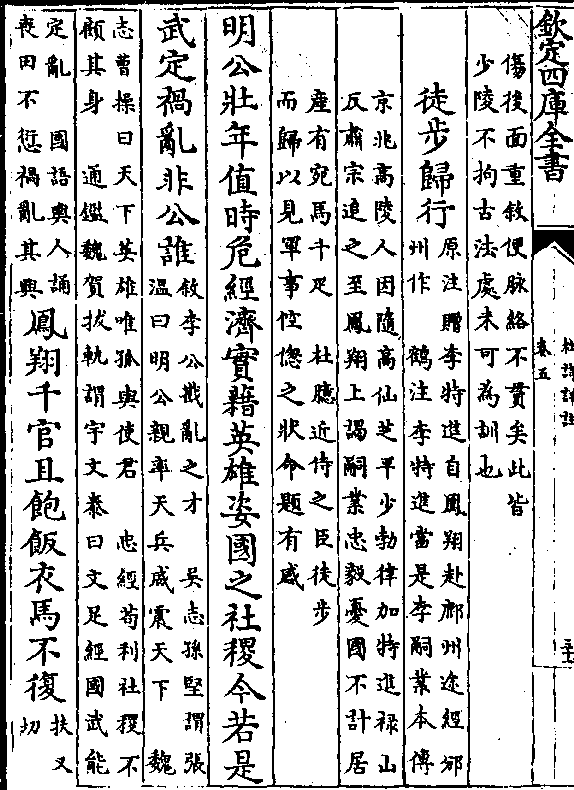 欽定四庫全書
杜詩詳註
卷五
傷後面重敘便脉絡不貫矣此皆
少陵不拘古法處未可為訓也
徒步歸行
原注贈李特進自鳳翔赴鄜州途經邠
州作 鶴注李特進當是李嗣業本傳
京兆高陵人因隨高仙芝平少勃律加特進禄山
反肅宗追之至鳳翔上謁嗣業忠毅憂國不計居
産有宛馬十疋 杜臆近侍之臣徒步
而歸以見軍事倥偬之狀命題有感
明公壯年值時危經濟實藉英雄姿國之社稷今若是
武定禍亂非公誰
敘李公戡亂之才 吳志孫堅謂張
温曰明公親率天兵威震天下 魏
志曹操曰天下英雄唯孤與使君 忠經苟利社稷不
顧其身 通鑑魏賀拔軌謂宇文泰曰文足經國武能
定亂 國語輿人誦
喪田不懲禍亂其興
鳳翔千官且飽飯衣馬不復
扶又
切